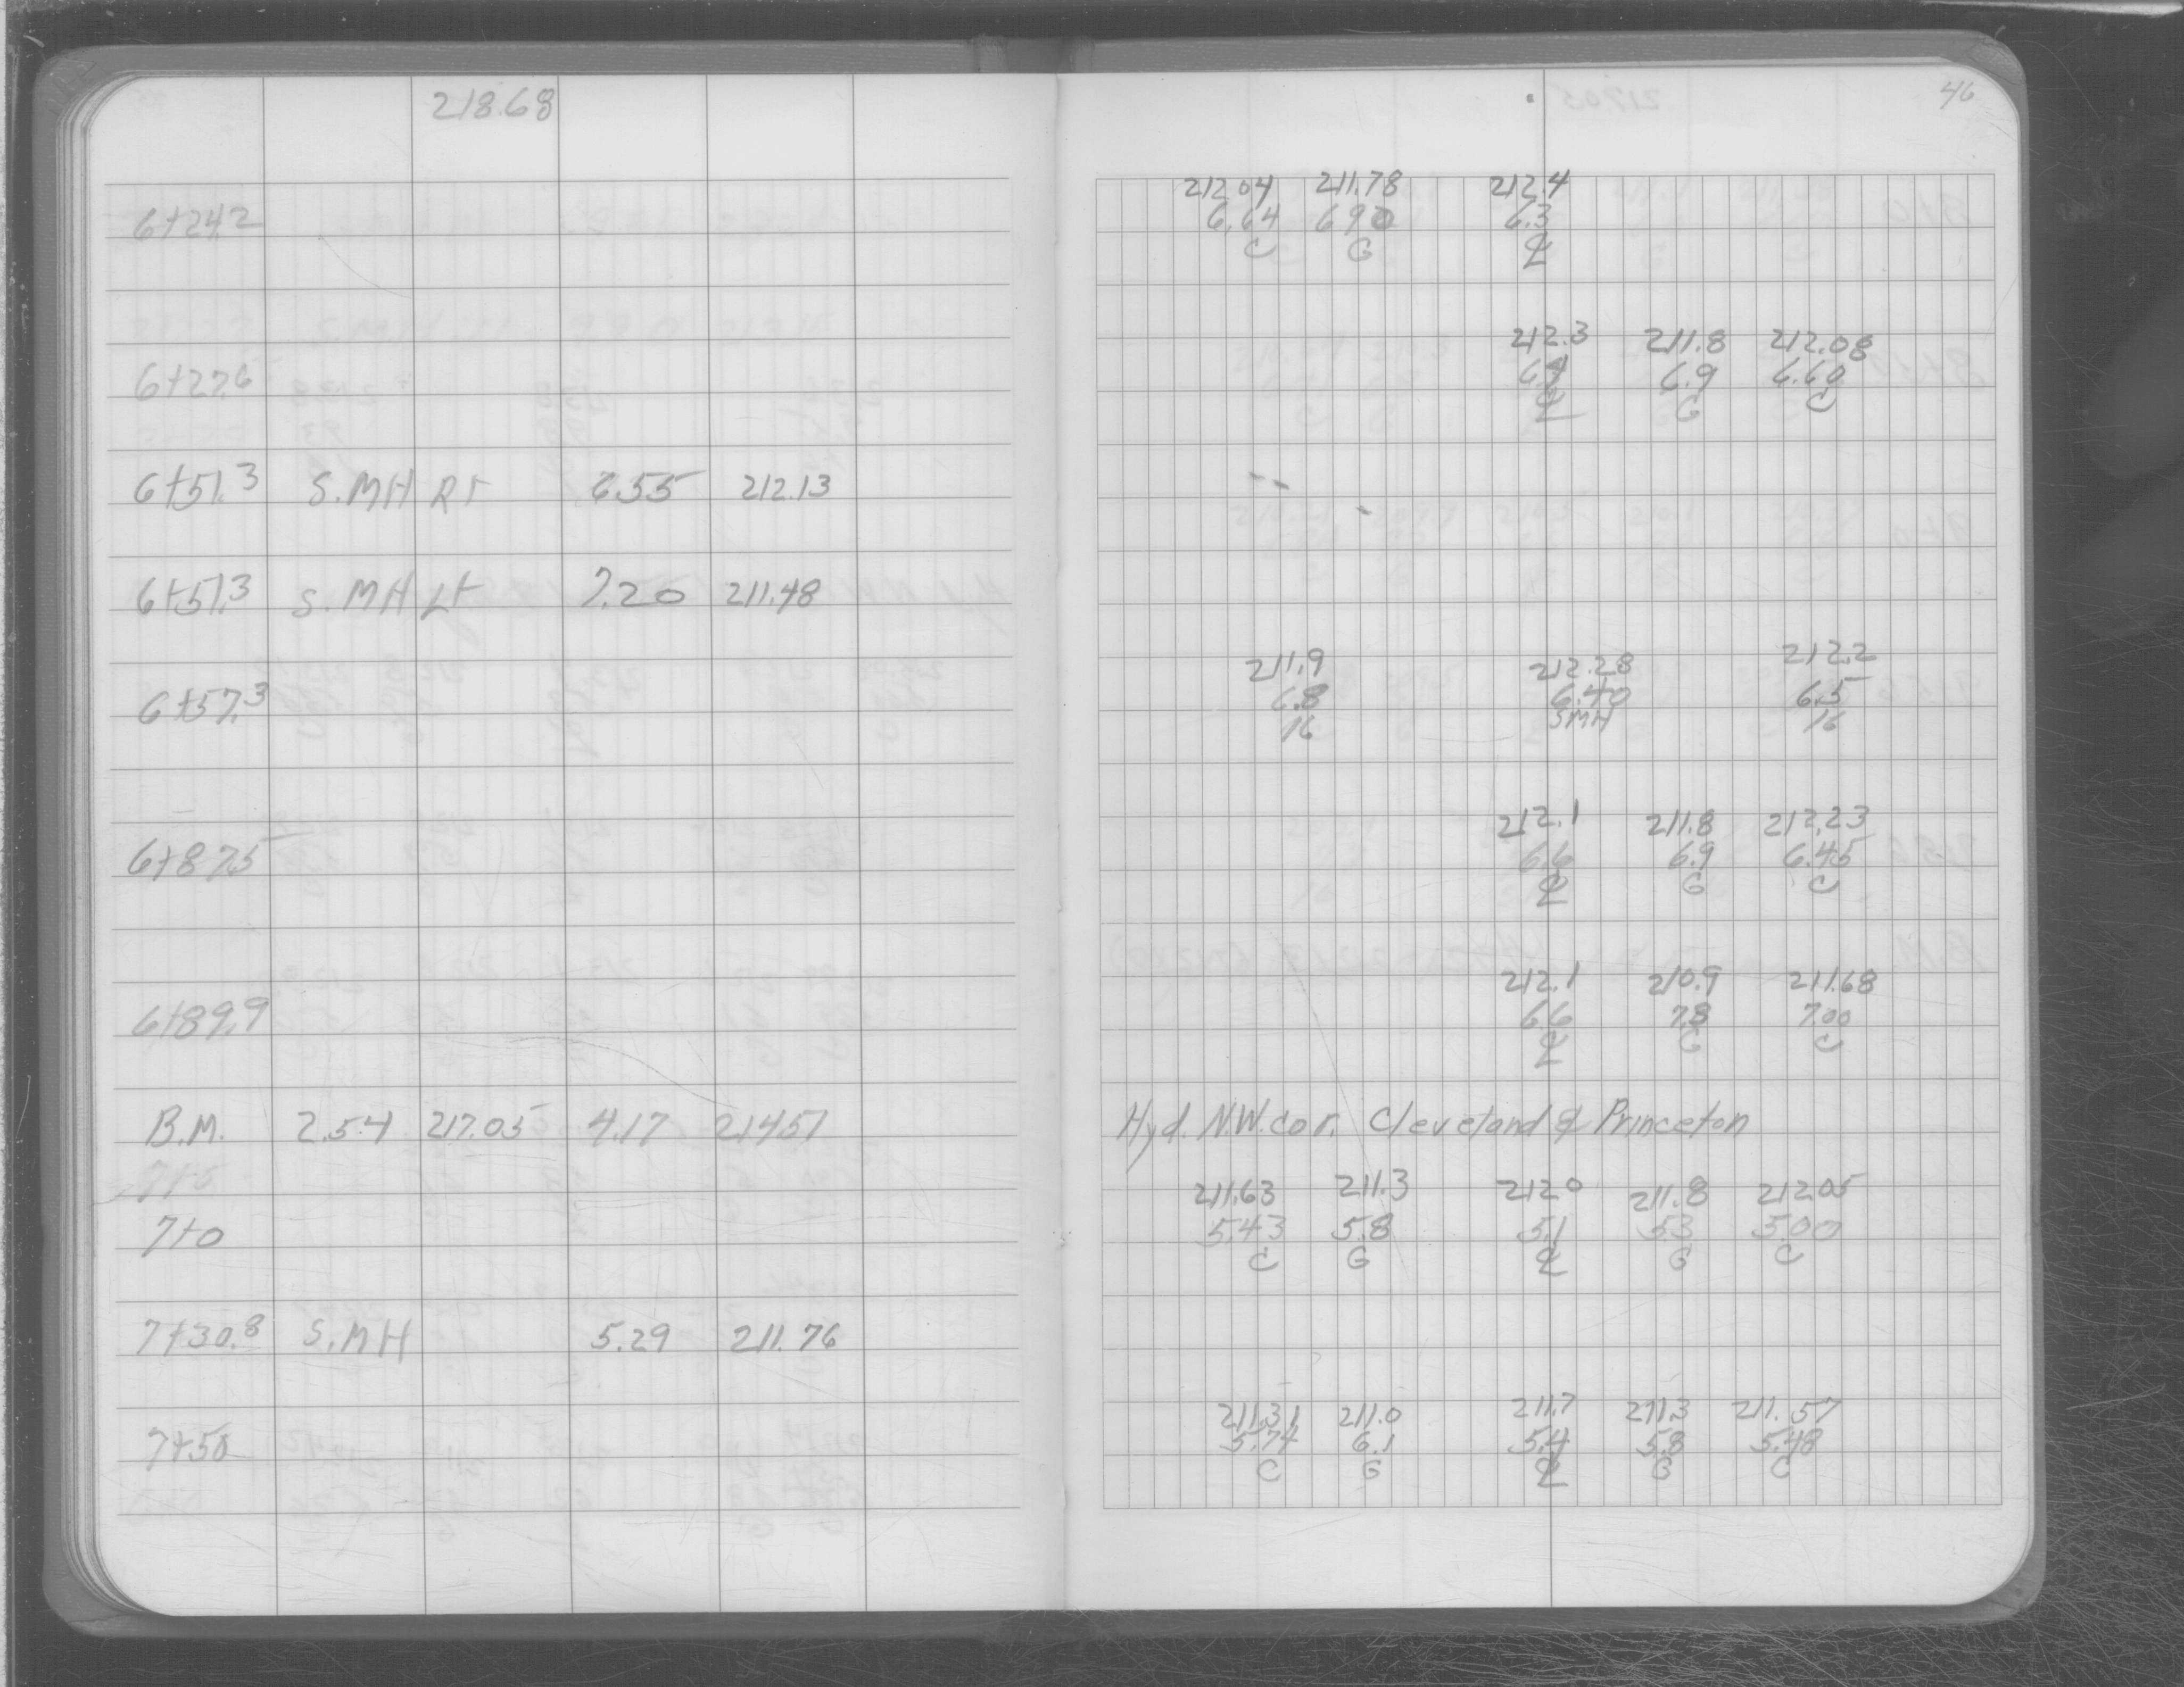 218.68
46
212.04 211.78 212.4
6+24.2 6.64 6.90 6.3
C G ℄
212.3 211.8 212.08
6+27.6 6.4 6.9 6.60
℄ G C
6+51.3 S.MH Rt 6.55 212.13
6+51.3 S.MH Lt 7.20 211.48
211.9 212.28 212.2
6+57.3 6.8 6.40 6.5
16 SMH 16
212.1 211.8 212.23
6+87.5 6.6 6.9 6.45
℄ G C
212.1 210.9 211.68
6+89.9 6.6 7.8 7.00
℄ G C
B.M. 2.54 217.05 4.17 214.51 Hyd. N.W. cor. Cleveland & Princeton
211.63 211.3 212.0 211.8 212.05
7+0 5.43 5.8 5.1 5.3 5.00
C G ℄ G C
7+30.8 S.MH 5.29 211.76
211.31 211.0 211.7 211.3 211.57
7+50 5.74 6.1 5.4 5.8 5.48
C G ℄ G C